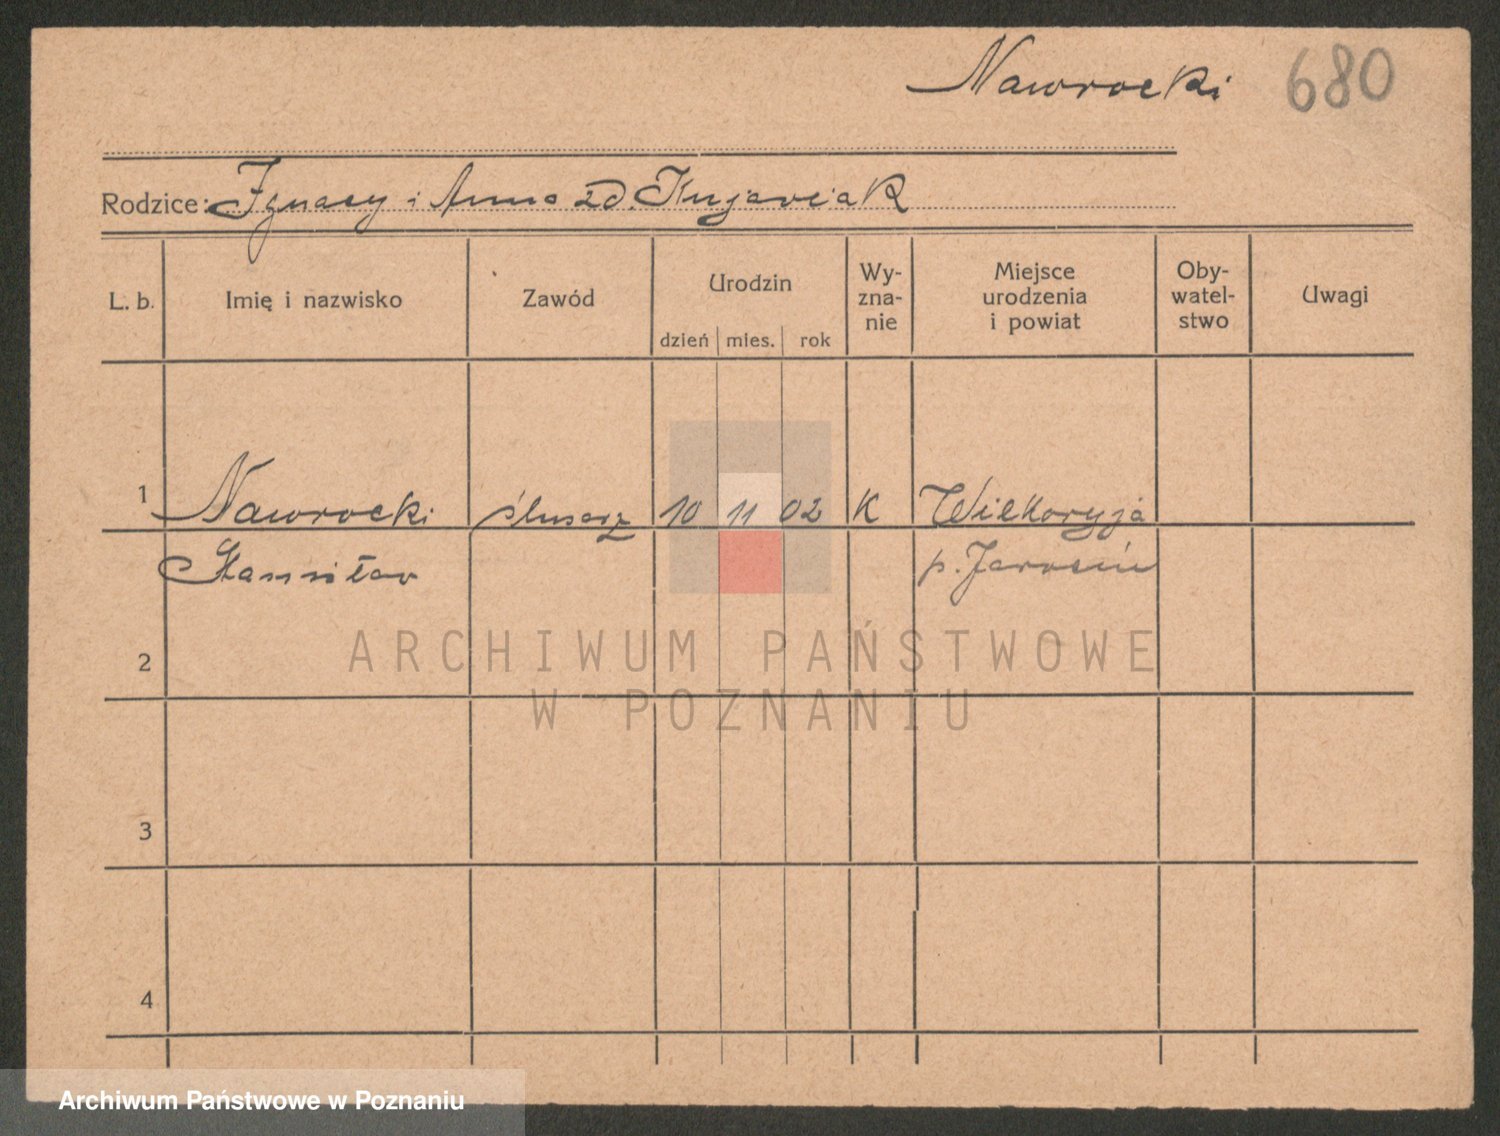 Nawrocki 680
Rodzice: Ignacy i Anna zd. Kujawiak
L. b. Imię i nazwisko Zawód Urodzin dzień mies. rok Wy-zna-nie Miejsce urodzenia i powiat Oby-watel-stwo Uwagi
1 Nawrocki ślusarz 10 11 02 K Wilkoryja
Stanisław p. Jarocin
2
ARCHIWUM PAŃSTWOWE
W POZNANIU
3
4
Archiwum Państwowe w Poznaniu